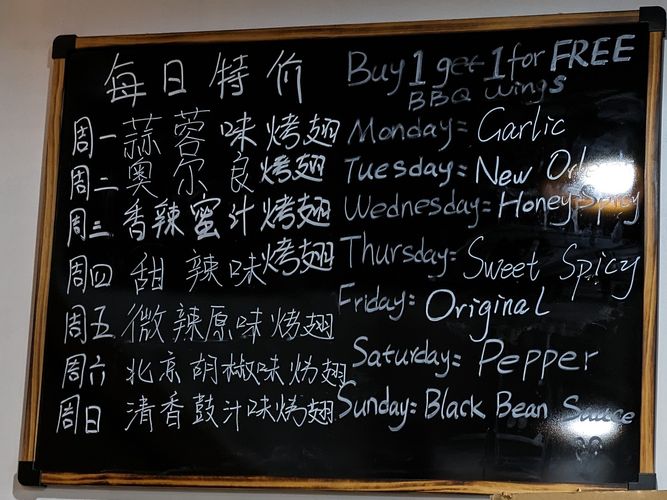 每日特价 Buy 1 get 1 for FREE
BBQ wings
周一 蒜蓉味烤翅 Monday: Garlic
周二 奥尔良烤翅 Tuesday: New Orleans
周三 香辣蜜汁烤翅 Wednesday: Honey Spicy
周四 甜辣味烤翅 Thursday: Sweet Spicy
周五 微辣原味烤翅 Friday: Original
周六 北京胡椒味烤翅 Saturday: Pepper
周日 清香鼓汁味烤翅 Sunday: Black Bean Sauce